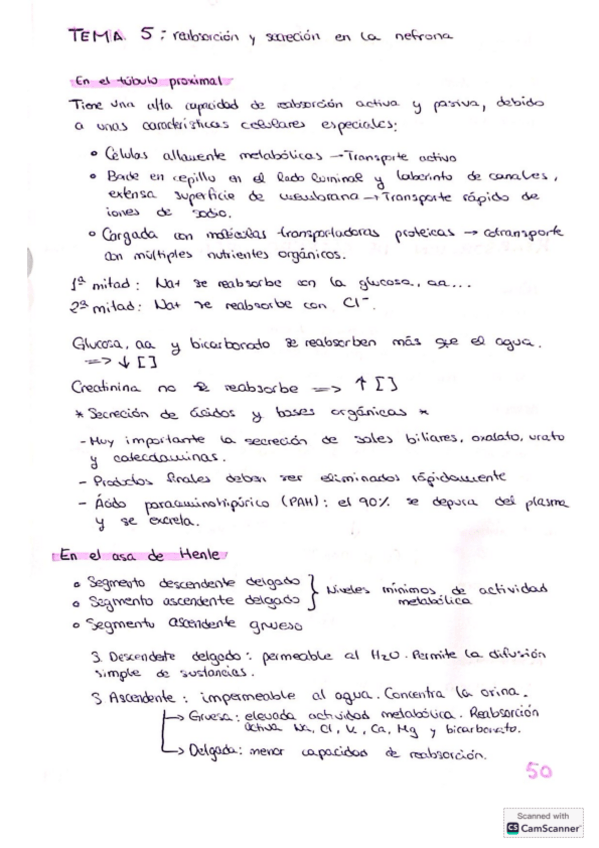 TEMA 5: reabsorción y secreción en la nefrona
En el túbulo proximal
Tiene una alta capacidad de reabsorción activa y pasiva, debido
a unas características celulares especiales:
• Células altamente metabólicas → Transporte activo
• Borde en cepillo en el lado luminal y laberinto de canales,
extensa superficie de membrana → Transporte rápido de
iones de sodio.
• Cargada con moléculas transportadoras proteicas → cotransporte
con múltiples nutrientes orgánicos.
1ª mitad: Na+ se reabsorbe con la glucosa, aa...
2ª mitad: Na+ se reabsorbe con Cl⁻.
Glucosa, aa y bicarbonato se reabsorben más que el agua.
=> ↓ []
Creatinina no se reabsorbe => ↑ []
* Secreción de ácidos y bases orgánicas *
- Muy importante la secreción de sales biliares, oxalato, urato
y catecolaminas.
- Productos finales deben ser eliminados rápidamente
- Ácido paraaminohipúrico (PAH): el 90% se depura del plasma
y se excreta.
En el asa de Henle
• Segmento descendente delgado
• Segmento ascendente delgado } Niveles mínimos de actividad
metabólica
• Segmento ascendente grueso
S. Descendente delgado: permeable al H2O. Permite la difusión
simple de sustancias.
S Ascendente: impermeable al agua. Concentra la orina.
→ Gruesa: elevada actividad metabólica. Reabsorción
activa Na, Cl, K, Ca, Mg y bicarbonato.
→ Delgada: menor capacidad de reabsorción.
50
Scanned with
CS CamScanner